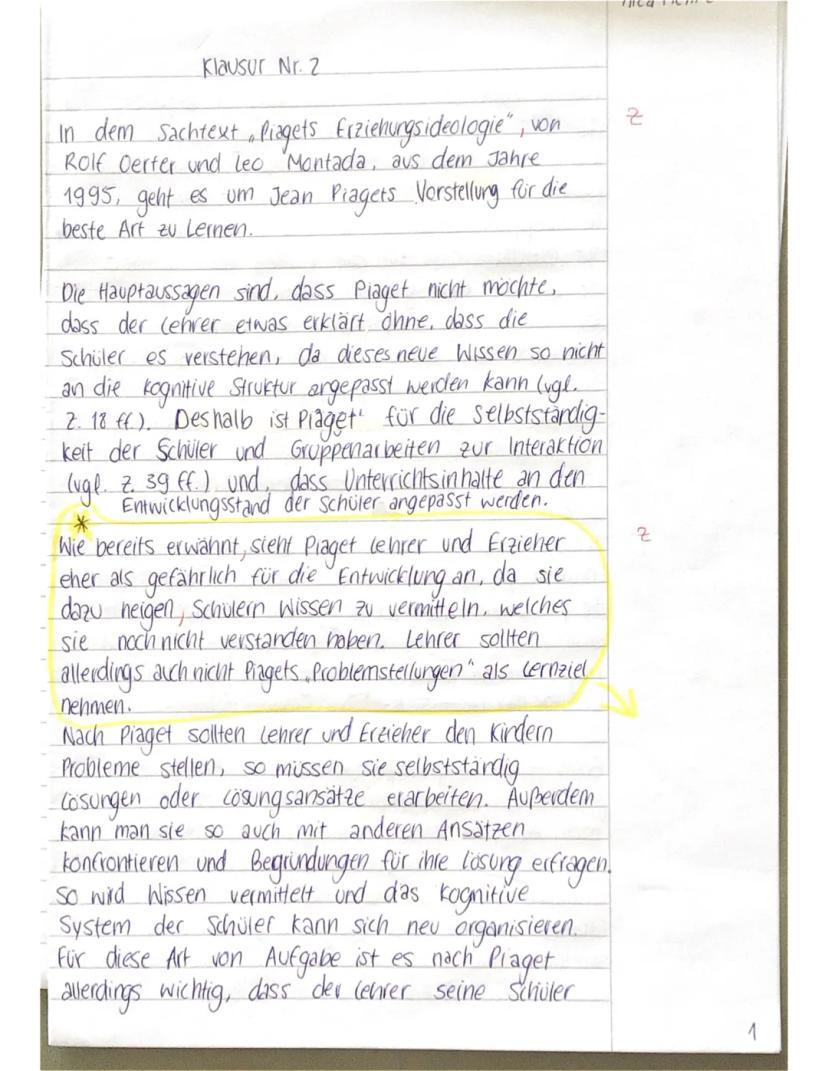 Klausur Nr. 2
Z
In dem Sachtext „Piagets Erziehungsideologie", von
Rolf Oerter und Leo Montada, aus dem Jahre
1995, geht es um Jean Piagets Vorstellung für die
beste Art zu Lernen.
Die Hauptaussagen sind, dass Piaget nicht möchte,
dass der Lehrer etwas erklärt ohne, dass die
Schüler es verstehen, da dieses neue Wissen so nicht
an die kognitive Struktur angepasst werden kann (vgl.
Z. 18 ff.). Deshalb ist Piaget für die Selbstständig-
keit der Schüler und Gruppenarbeiten zur Interaktion
(vgl. Z. 39 ff.) und, dass Unterrichtsinhalte an den
Entwicklungsstand der Schüler angepasst werden.
*
Wie bereits erwähnt, sieht Piaget Lehrer und Erzieher
Z
eher als gefährlich für die Entwicklung an, da sie
dazu neigen, Schülern Wissen zu vermitteln, welches
sie noch nicht verstanden haben. Lehrer sollten
allerdings auch nicht Piagets „Problemstellungen" als Lernziel
nehmen.
Nach Piaget sollten Lehrer und Erzieher den Kindern
Probleme stellen, so müssen sie selbstständig
Lösungen oder Lösungsansätze erarbeiten. Außerdem
kann man sie so auch mit anderen Ansätzen
konfrontieren und Begründungen für ihre Lösung erfragen.
So wird Wissen vermittelt und das Kognitive
System der Schüler kann sich neu organisieren.
Für diese Art von Aufgabe ist es nach Piaget
allerdings wichtig, dass der Lehrer seine Schüler
1